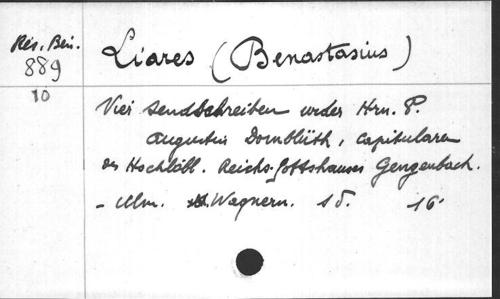 Rés. Bei.
889
10
Liares (Benastasius)
Vier Sendschreiben wider Hrn. P.
Augustin Dornblüth, Capitularn
des Hochlöbl. Reichs-Gottshauses Gengenbach.
- Ulm. Wagnern. s d. 16°